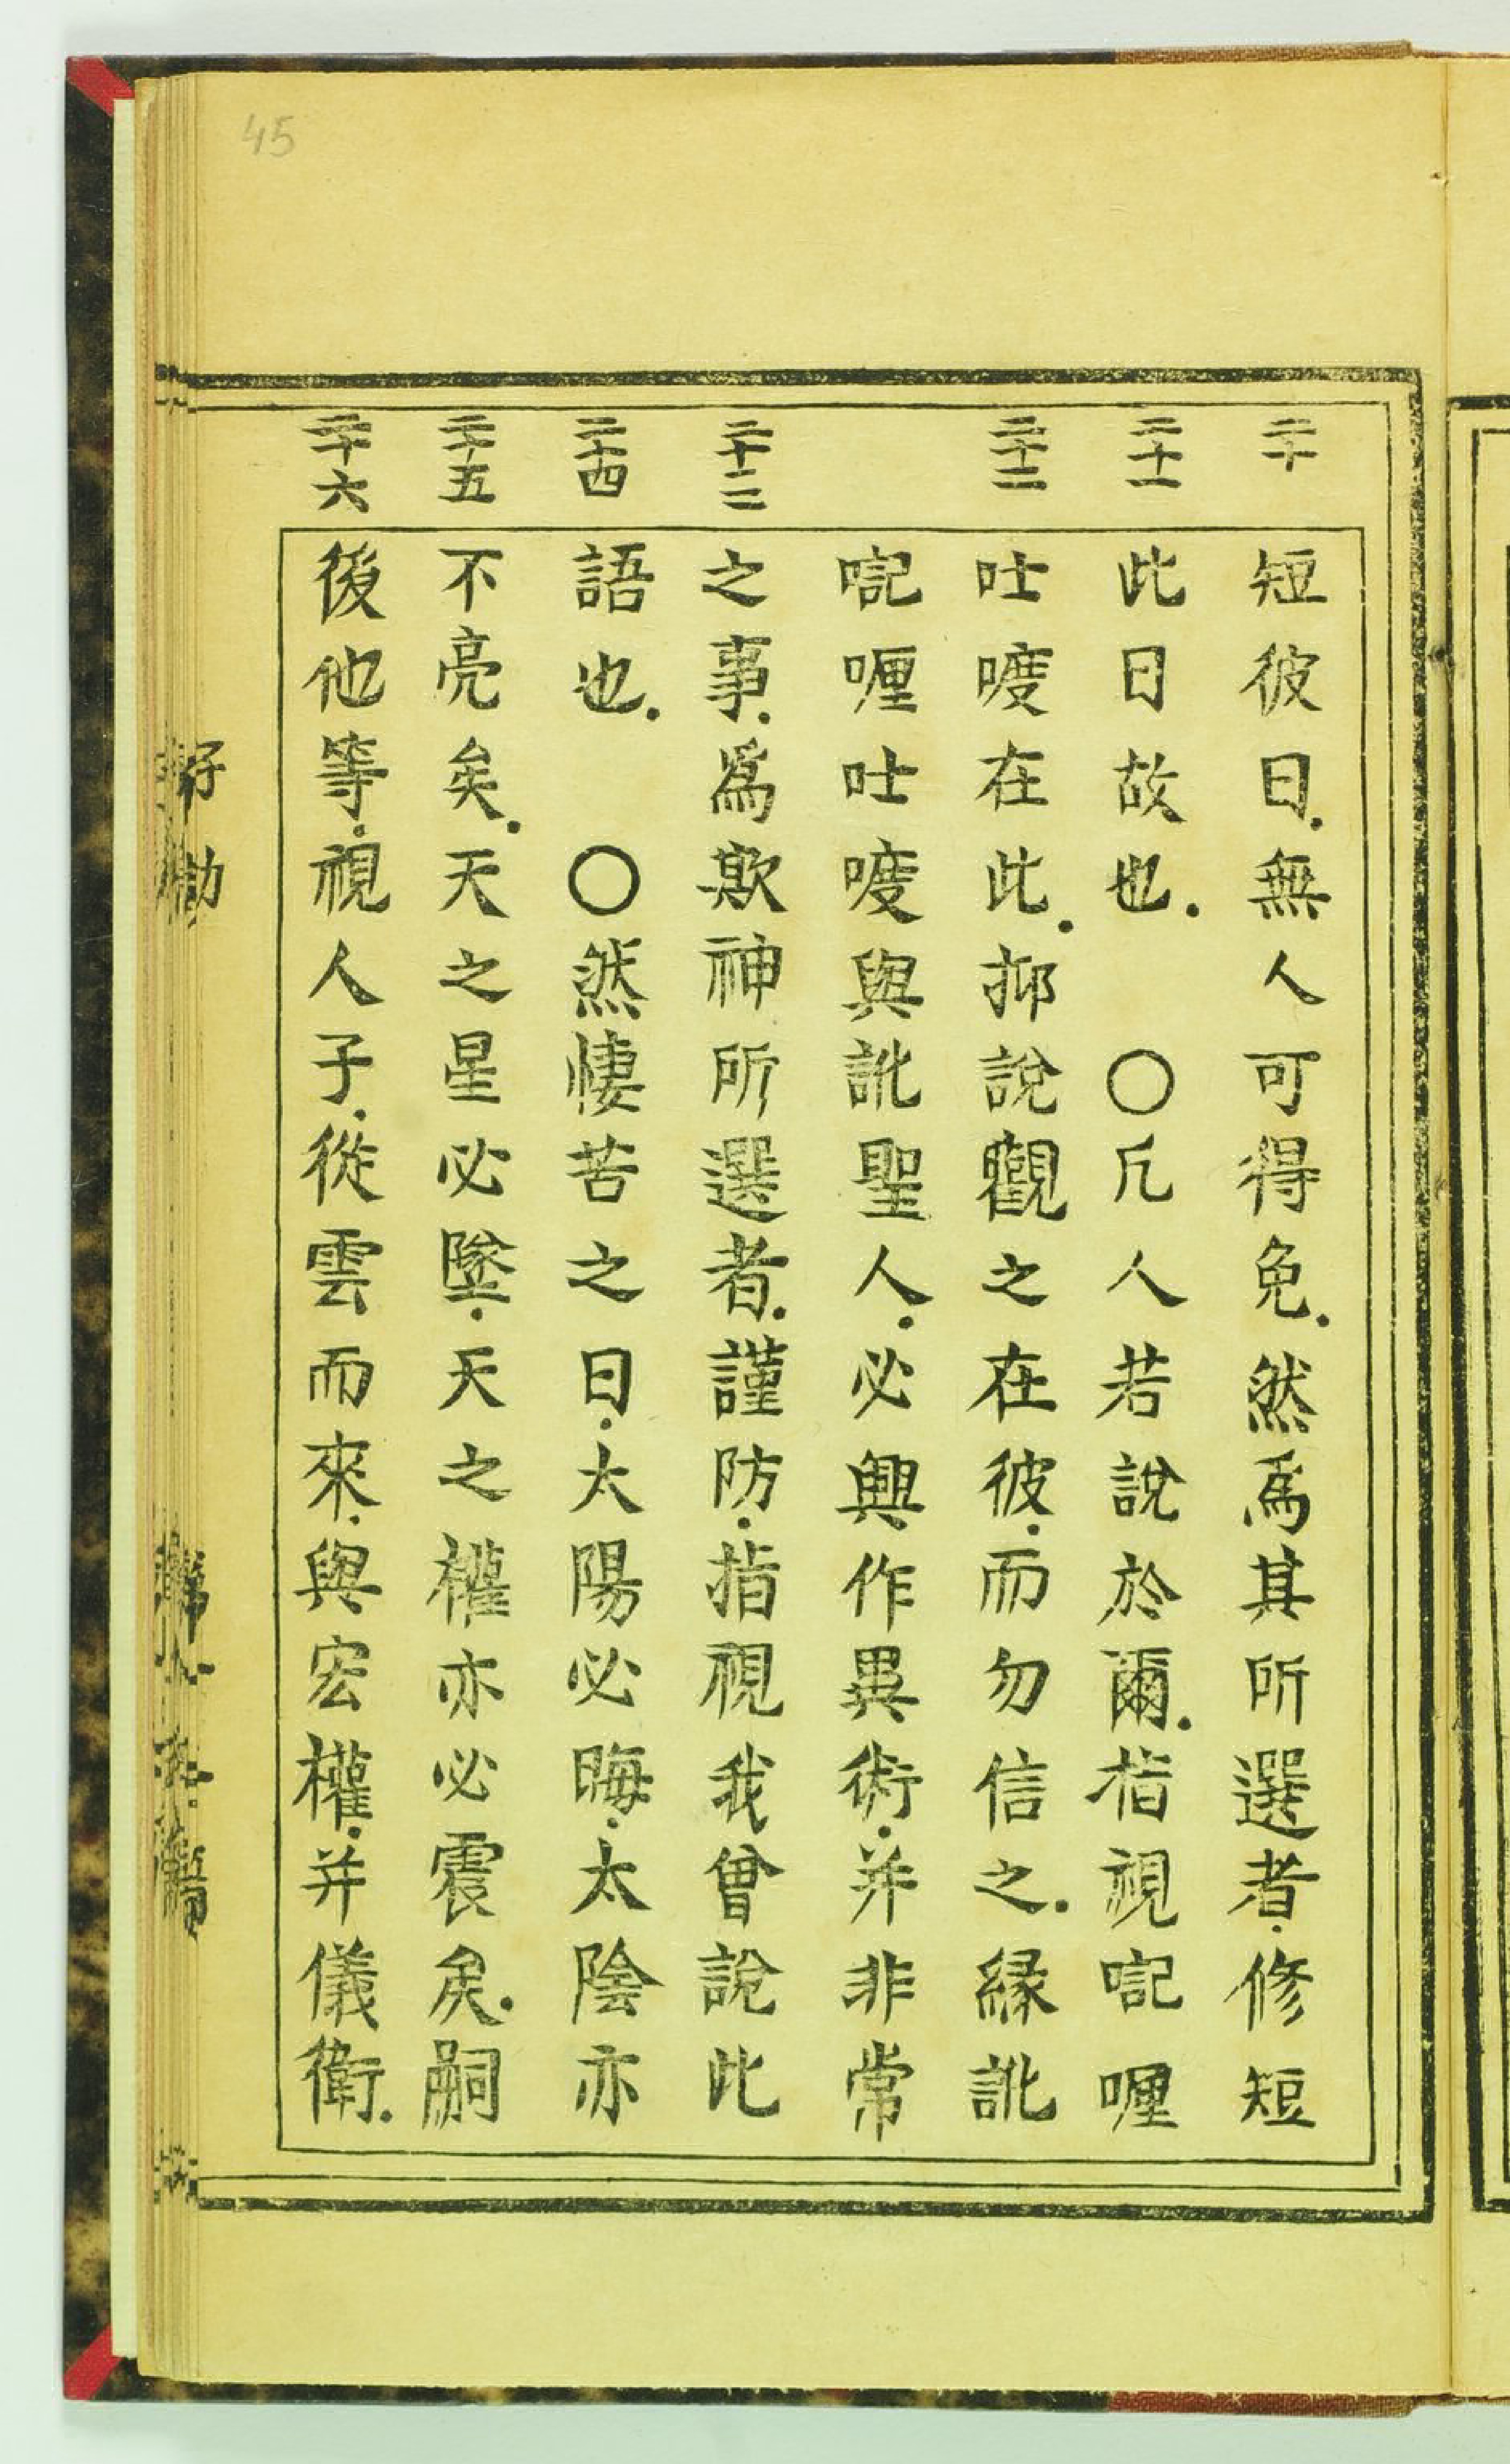 45
二十
短彼日.無人可得免.然爲其所選者.修短
二十一
此日故也.〇凡人若說於爾.指視𠸄喱
二十二
吐嚒在此.抑說觀之在彼.而勿信之.緣訛
𠸄喱吐嚒與訛聖人.必興作異術.并非常
二十三
之事.爲欺神所選者.謹防.指視我曾說此
二十四
語也.〇然悽苦之日.太陽必晦.太陰亦
二十五
不亮矣.天之星必墜.天之權亦必震矣.嗣
二十六
後他等.視人子.從雲而來.與宏權.并儀衛.